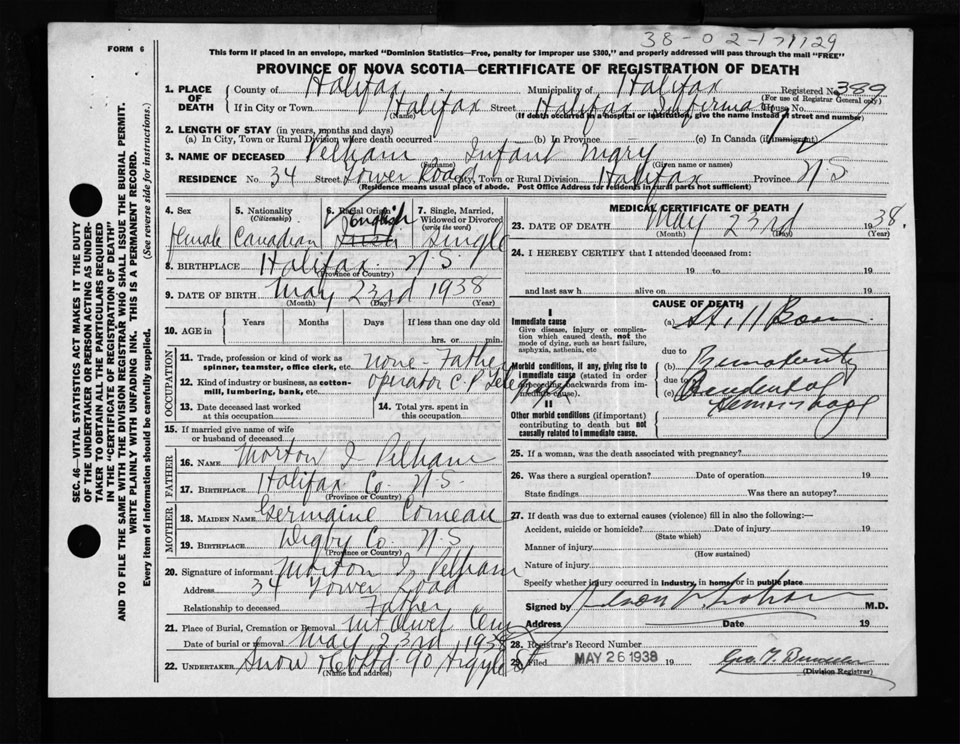 38-02-171129
FORM 6
This form if placed in an envelope, marked "Dominion Statistics—Free, penalty for improper use $300," and properly addressed will pass through the mail "FREE"
PROVINCE OF NOVA SCOTIA—CERTIFICATE OF REGISTRATION OF DEATH
1. PLACE OF DEATH County of Halifax Municipality of Halifax Registered No. 389
(For use of Registrar General only)
If in City or Town Halifax Street Halifax Infirmary House No.
(Name) (If death occurred in a hospital or institution, give the name instead of street and number)
2. LENGTH OF STAY (in years, months and days)
(a) In City, Town or Rural Division where death occurred (b) In Province (c) In Canada (if immigrant)
3. NAME OF DECEASED Pelham Infant Mary
(Surname) (Given name or names)
RESIDENCE No. 34 Street Tower Road City, Town or Rural Division Halifax Province N S
(Residence means usual place of abode. Post Office Address for residents in rural parts not sufficient)
4. Sex female
5. Nationality (Citizenship) Canadian
6. Racial Origin English
7. Single, Married, Widowed or Divorced (write the word) Single
8. BIRTHPLACE Halifax N.S.
(Province or Country)
9. DATE OF BIRTH May 23rd 1938
(Month) (Day) (Year)
10. AGE in Years Months Days If less than one day old
hrs. or min.
OCCUPATION
11. Trade, profession or kind of work as spinner, teamster, office clerk, etc. none - Father
12. Kind of industry or business, as cotton-mill, lumbering, bank, etc. operator C.P. Telegraph
13. Date deceased last worked at this occupation
14. Total yrs. spent in this occupation
15. If married give name of wife or husband of deceased
FATHER
16. NAME Morton J Pelham
17. BIRTHPLACE Halifax Co N.S.
(Province or Country)
MOTHER
18. MAIDEN NAME Germaine Comeau
19. BIRTHPLACE Digby Co. N.S
(Province or Country)
20. Signature of informant Morton J. Pelham
Address 34 Tower Road
Relationship to deceased Father
21. Place of Burial, Cremation or Removal Mt Olivet Cem
Date of burial or removal May 23rd 1938
22. UNDERTAKER Snow & Co Ltd 90 Argyle St
(Name and address)
MEDICAL CERTIFICATE OF DEATH
23. DATE OF DEATH May 23rd 1938
(Month) (Day) (Year)
24. I HEREBY CERTIFY that I attended deceased from:
19 to 19
and last saw h alive on 19
CAUSE OF DEATH
I
Immediate cause
Give disease, injury or complication which caused death, not the mode of dying, such as heart failure, asphyxia, asthenia, etc
(a) Still Born
due to
Morbid conditions, if any, giving rise to immediate cause (stated in order proceeding backwards from immediate cause).
(b) Prematurity
due to
(c) Accidental Hemorrhage
II
Other morbid conditions (if important) contributing to death but not causally related to immediate cause.
25. If a woman, was the death associated with pregnancy?
26. Was there a surgical operation? Date of operation 19
State findings Was there an autopsy?
27. If death was due to external causes (violence) fill in also the following:—
Accident, suicide or homicide? Date of injury 19
(State which)
Manner of injury
(How sustained)
Nature of injury
Specify whether injury occurred in industry, in home or in public place
Signed by M.D.
Address Date 19
28. Registrar's Record Number
29. Filed MAY 26 1938 19
(Division Registrar)
SEC. 46—VITAL STATISTICS ACT MAKES IT THE DUTY
OF THE UNDERTAKER OR PERSON ACTING AS UNDERTAKER
TO OBTAIN ALL THE PARTICULARS REQUIRED
IN THE "CERTIFICATE OF REGISTRATION OF DEATH"
AND TO FILE THE SAME WITH THE DIVISION REGISTRAR WHO SHALL ISSUE THE BURIAL PERMIT.
WRITE PLAINLY WITH UNFADING INK. THIS IS A PERMANENT RECORD.
Every item of information should be carefully supplied. (See reverse side for instructions.)